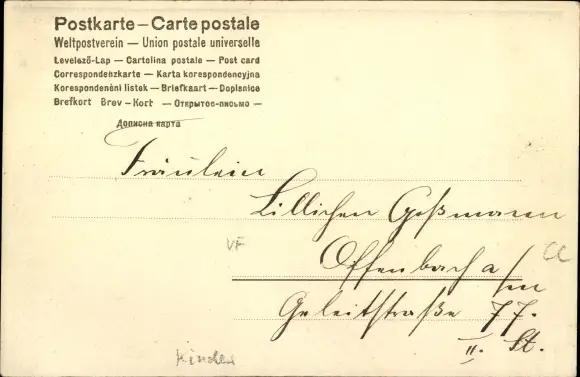 Postkarte — Carte postale
Weltpostverein — Union postale universelle
Levelező-Lap — Cartolina postale — Post card
Correspondenzkarte — Karta korespondencyjna
Korespondenční lístek — Briefkaart — Dopisnice
Brefkort Brev-Kort — Открытое-письмо —
Дописна карта
Fräulein
Lillichen Goßmann
Offenbach a/m
Geleitstraße 77.
II. St.
VF
CC
Kinder